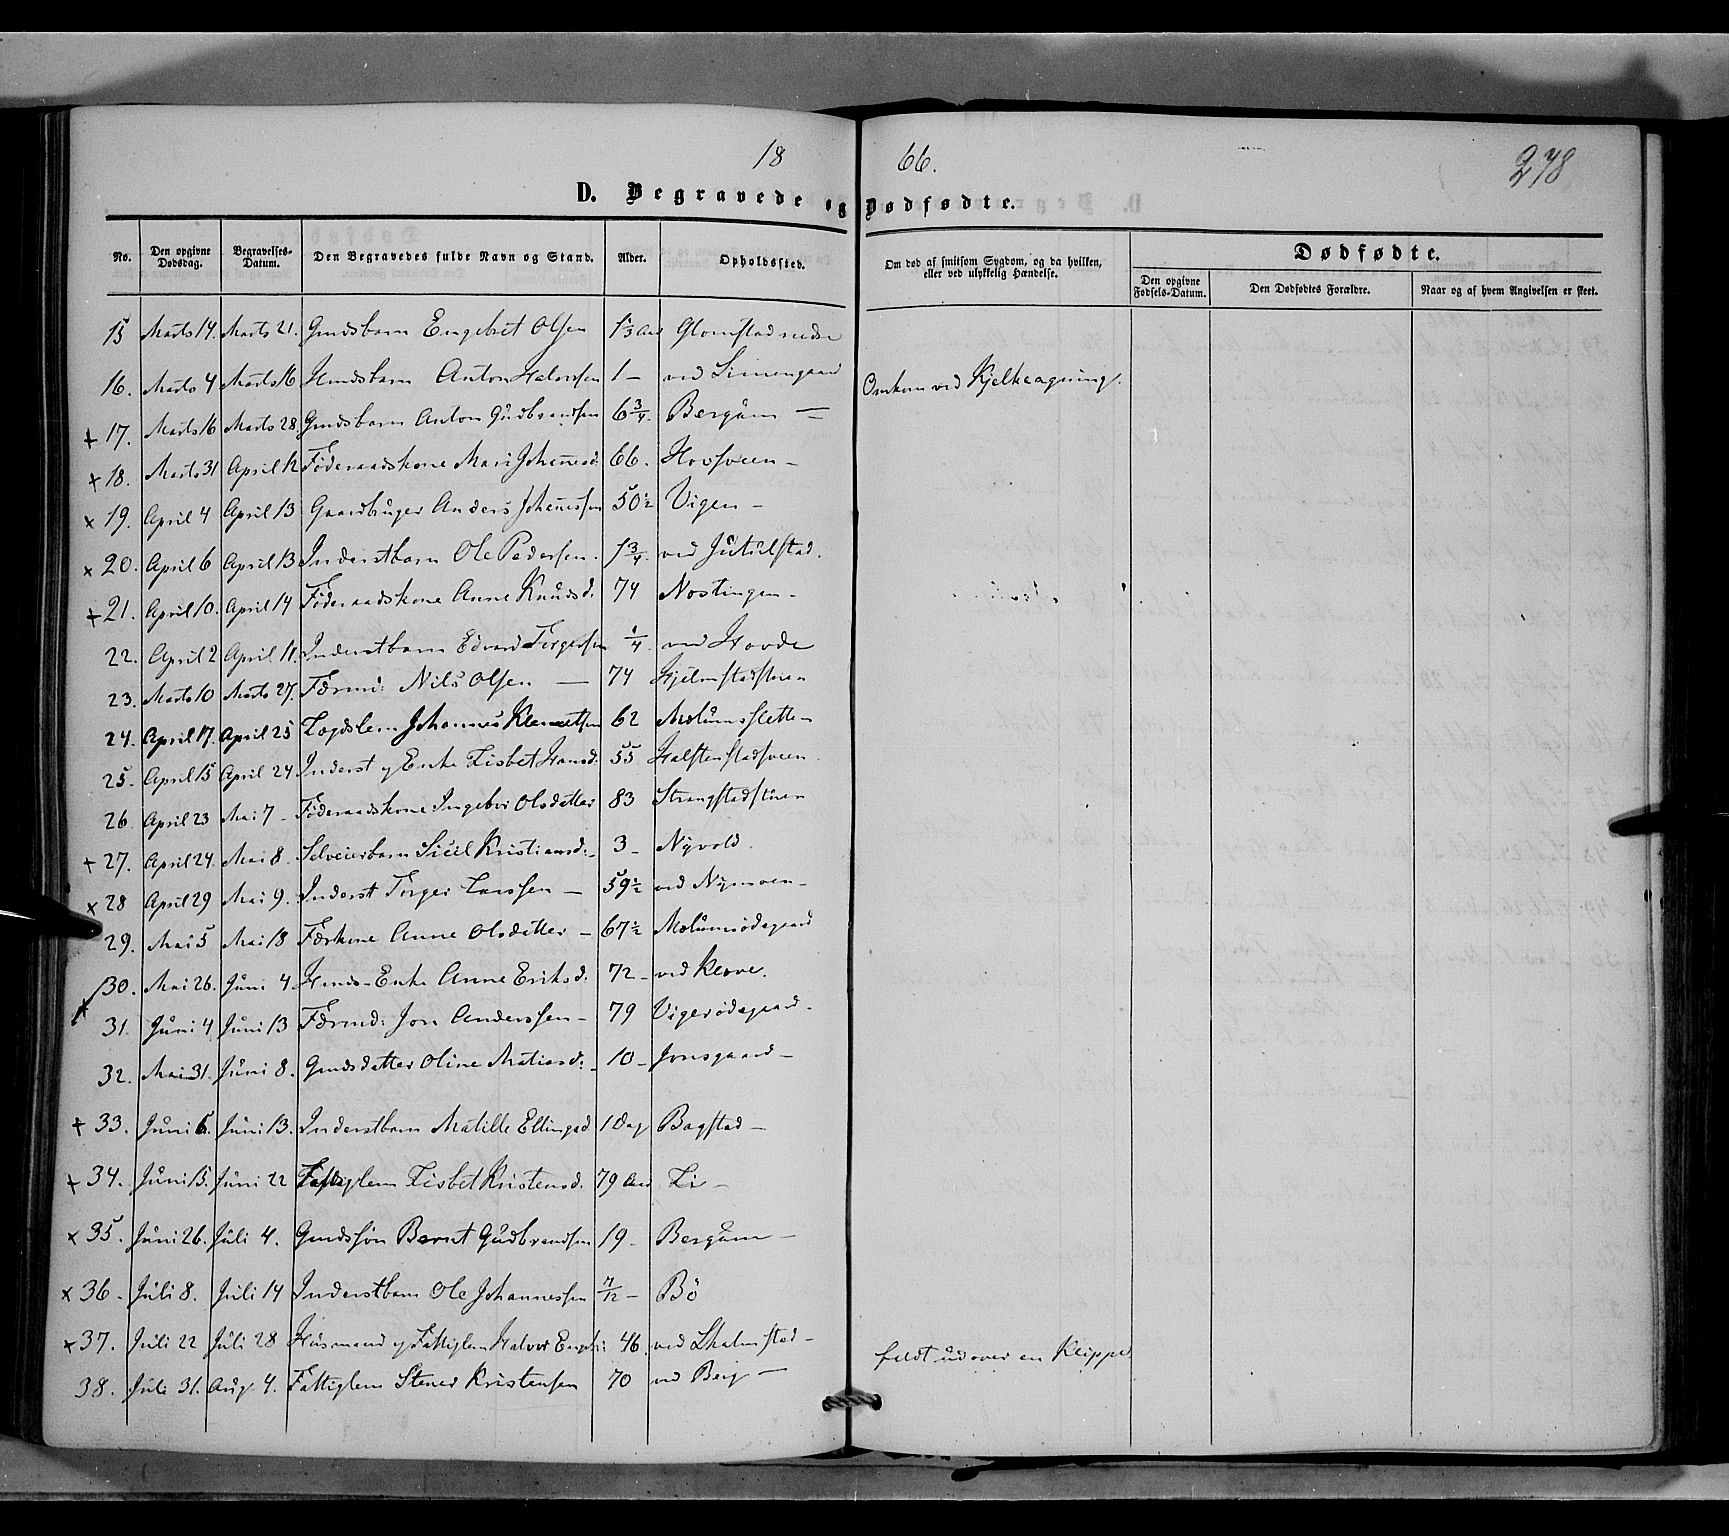 18 66.
278
D. Begravede og Dødfødte.
No. Den opgivne Dødsdag. Begravelses-Datum. Den Begravedes fulde Navn og Stand. Alder. Opholdssted. Om død af smitsom Sygdom, og da hvilken, eller ved ulykkelig Hændelse. Dødfødte.
Den opgivne Fødsels-Datum. Den Dødfødtes Forældre. Naar og af hvem Angivelsen er skeet.
15 Marts 14. Marts 21. Gmdsbarn Engebret Olsen 1 1/3 Aar Glomstad nedre
16. Marts 4 Marts 16 Hmdsbarn Anton Halvorsen 1 — ved Linnengaard Omkom ved Kjelkeagning.
+ 17. Marts 16 Marts 28. Gmdsbarn Anton Gudbrandsen 6 3/4. Bergum —
+ 18. Marts 31 April 12 Føderaadskone Mari Johannesd. 66. Hovsveen —
x 19. April 4 April 13 Gaardbruger Anders Johannessen 50 1/2 Vigen —
x 20. April 6 April 13 Inderstbarn Ole Pedersen. 1 3/4. ved Jutulstad.
+ 21. April 10. April 14 Føderaadskone Anne Knudsd. 74 Nostingen —
22. April 2 April 11. Inderstbarn Edvard Torgersen 1/4. ved Hovde
23. Marts 10 Marts 27. Færmd: Nils Olsen — 74 Hjelmstadstuen
24. April 17. April 25 Lægdslem Johannes Klemetsen 62 Molumsletten
25. April 15 April 24 Inderst og Enke Lisbet Hansd: 55 Halstenstadsveen.
26. April 23 Mai 7 — Føderaadskone Ingebor Olsdatter 83 Strangstadstuen
+ 27. April 24. Mai 8. Selveierbarn Sicil Kristiansd: — 3 — Nyvold.
x 28 April 29 Mai 9. Inderst Torger Larssen — 59 1/2 ved Nymoen —
29. Mai 5 Mai 18 Færkone Anne Olsdatter — 67 1/2 Molumsødegaard
+ 30. Mai 26. Juni 4. Hmds-Enke Anne Eriksd. 72 — ved Klove.
31. Juni 4 Juni 13 Færmd: Jon Anderssen — 79 Vigerødegaard.
32. Mai 31. Juni 8. Gmdsdatter Oline Matiasd: — 10 — Jonsgaard —
+ 33. Juni 6. Juni 13. Inderstbarn Matilde Ellingsd 1 Dag Bagstad —
+ 34. Juni 15. Juni 22 Fattiglem Lisbet Kristensd. 79 Aar Li —
x 35. Juni 26. Juli 4. Gmdssøn Bernt Gudbrandsen 19 — Bergum —
x 36. Juli 8. Juli 14 Inderstbarn Ole Johannessen 7/12 — Bö
x 37. Juli 22 Juli 28 Husmand og Fattiglem Halvor 46. ved Skalmstad — faldt ud over en Klippe.
38. Juli 31. Aug. 4. Fattiglem Stener Kristensen 70 ved Berg —